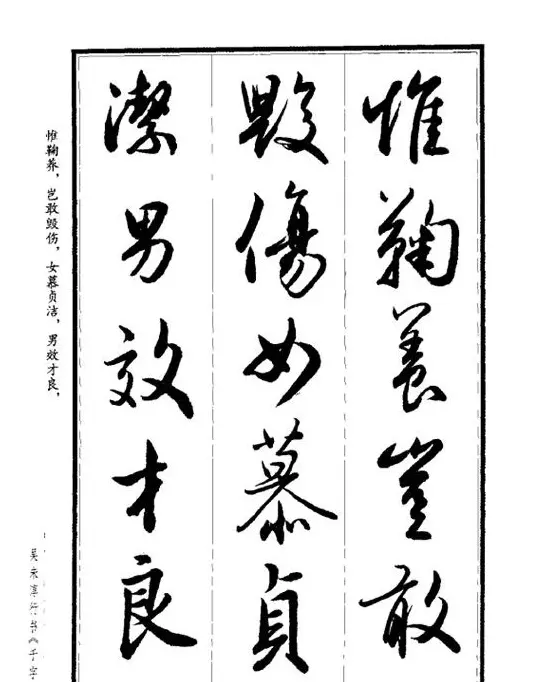 惟鞠養豈敢
毀傷女慕貞
潔男效才良
惟鞠养，岂敢毁伤，女慕贞洁，男效才良，
吴未淳行书《千字